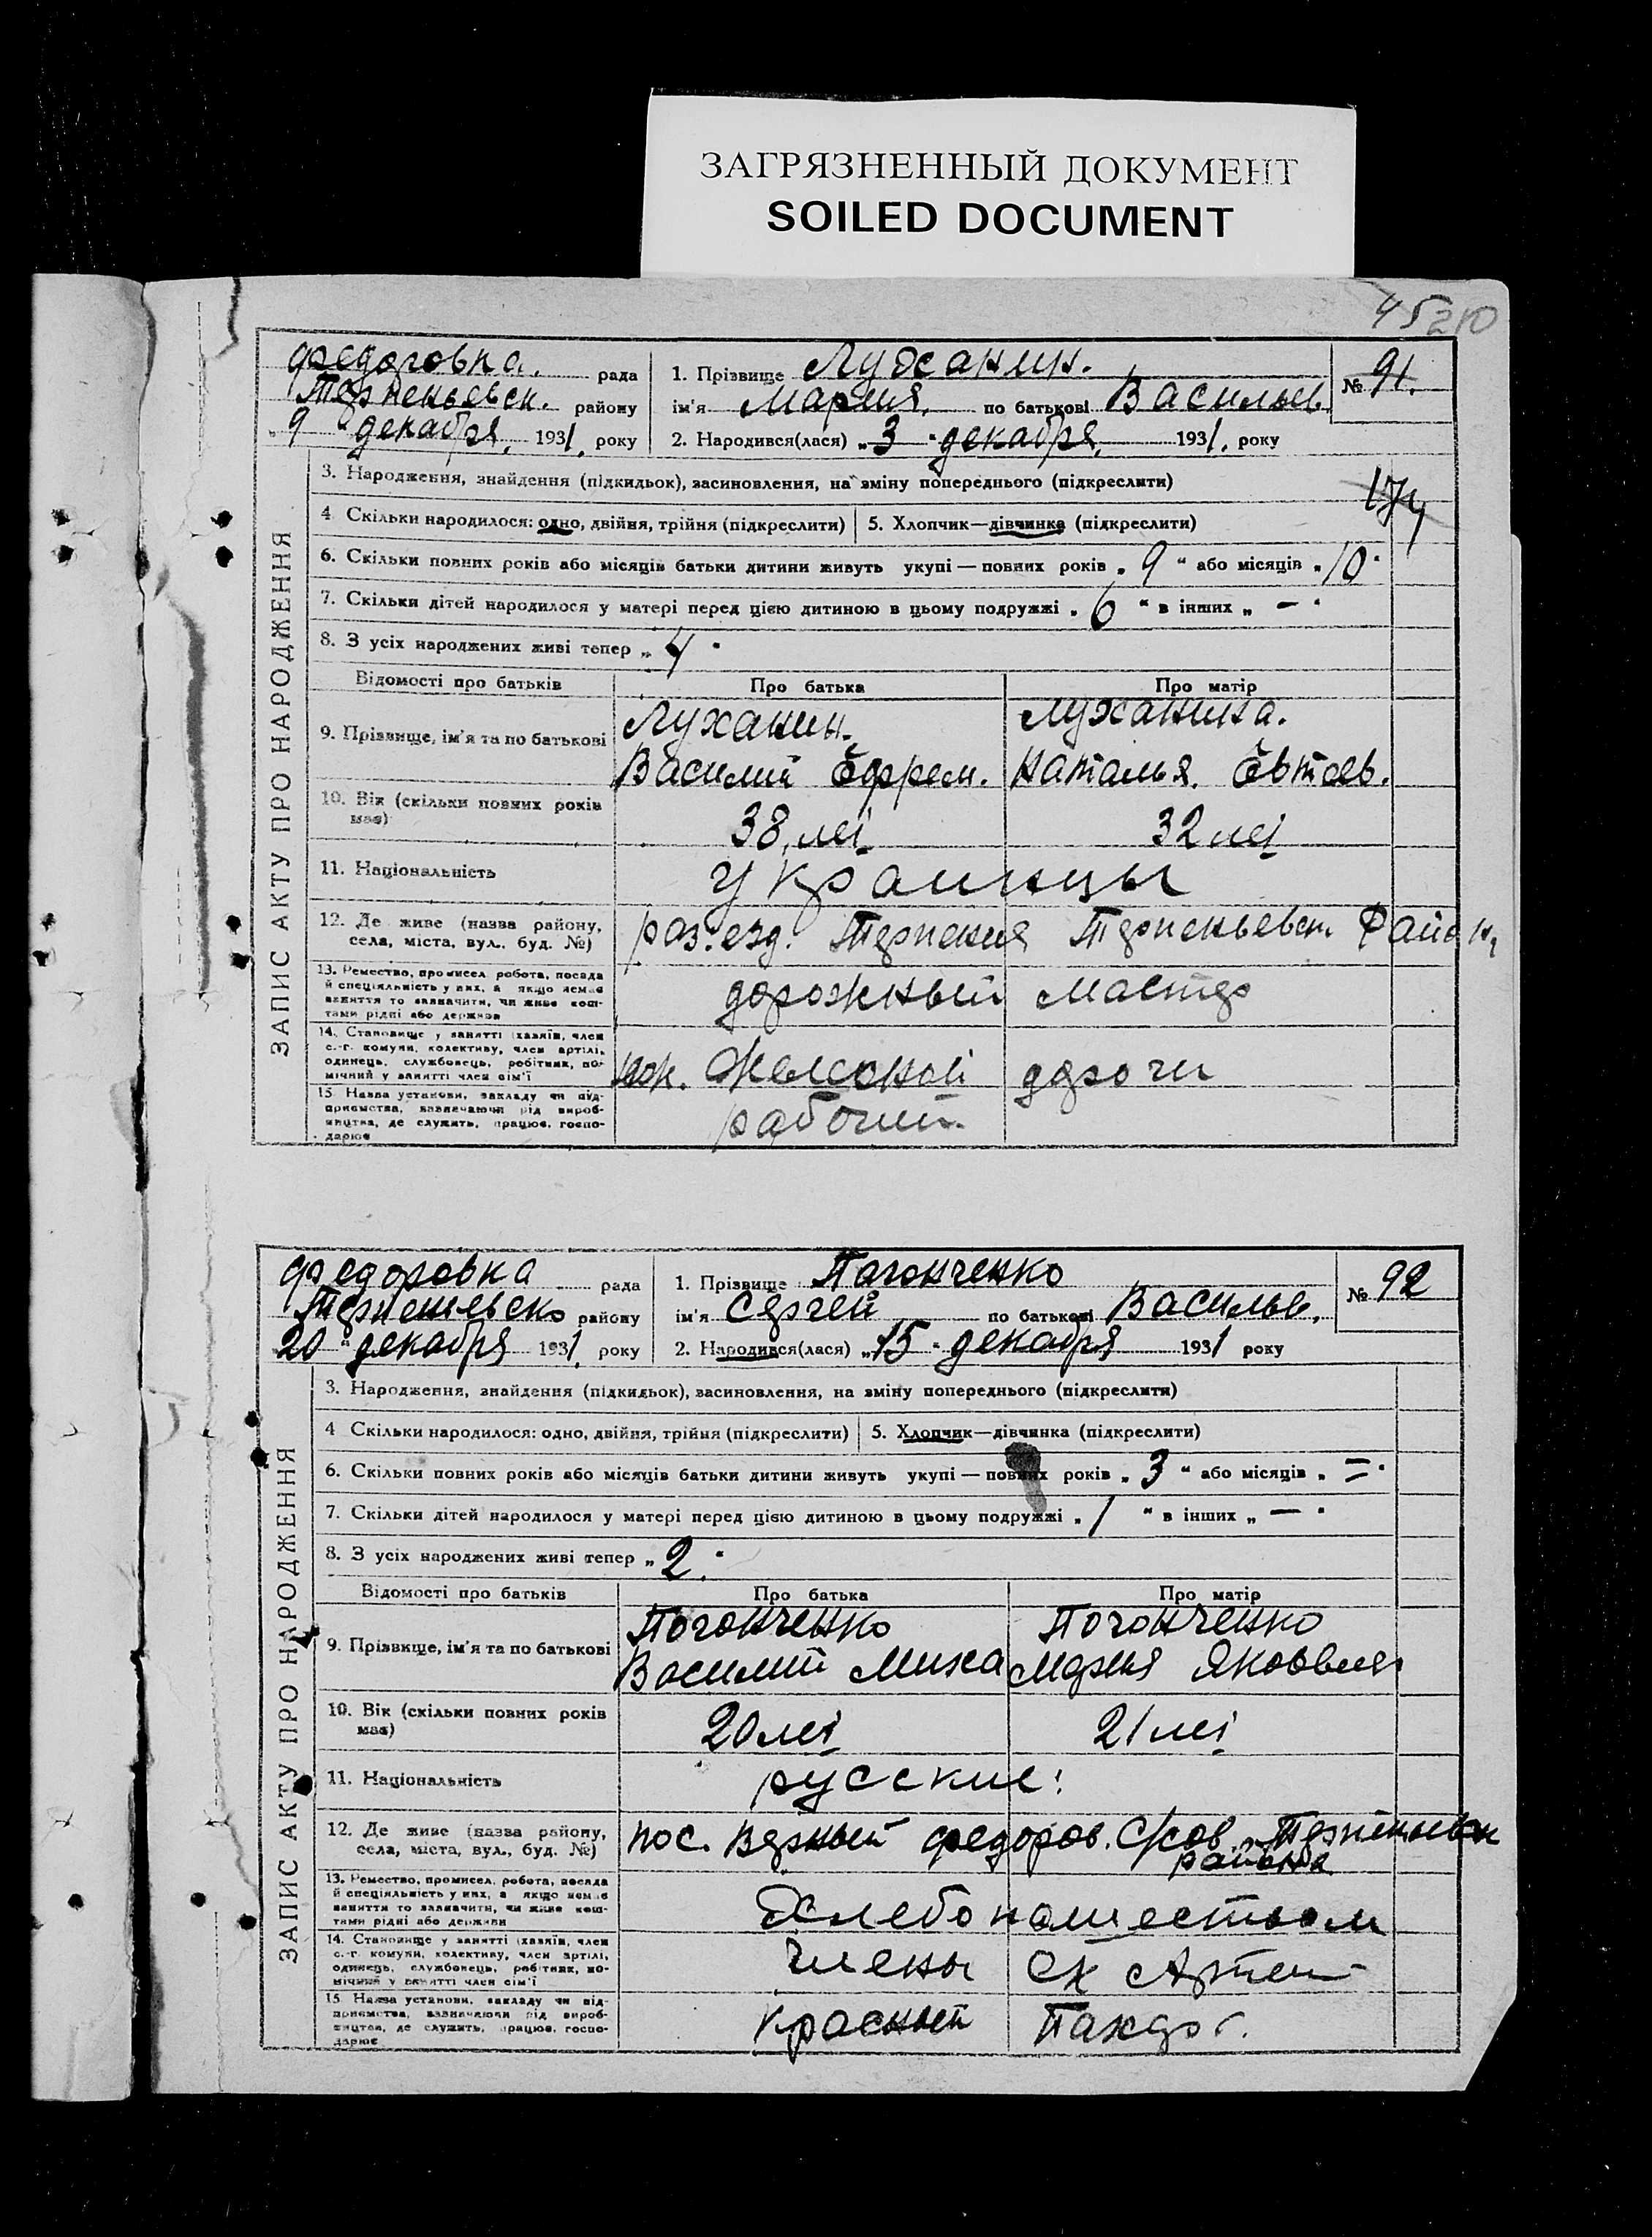 ЗАГРЯЗНЕННЫЙ ДОКУМЕНТ
SOILED DOCUMENT
45 210
Федоровка. рада
Терпеньевск. району
"9" декабря. 1931. року
1. Прізвище Луханин.
ім'я Мария. по батькові Васильев.
2. Народився(лася) "3" декабря. 1931. року
№ 91.
174
ЗАПИС АКТУ ПРО НАРОДЖЕННЯ
3. Народження, знайдення (підкидьок), засиновлення, на зміну попереднього (підкреслити)
4 Скільки народилося: одно, двійня, трійня (підкреслити) 5. Хлопчик—дівчинка (підкреслити)
6. Скільки повних років або місяців батьки дитини живуть укупі — повних років „ 9 " або місяців „ 10 "
7. Скільки дітей народилося у матері перед цією дитиною в цьому подружжі „ 6 " в інших „ — "
8. З усіх народжених живі тепер „ 4 "
Відомості про батьків Про батька Про матір
9. Прізвище, ім'я та по батькові
Луханин. Луханина.
Василий Ефрем. Наталья. Евтеев.
10. Вік (скільки повних років має)
38 лет 32 лет
11. Національність
украинцы
12. Де живе (назва району, села, міста, вул., буд. №)
раз.езд. Терпения Терпеньевск. Район
13. Ремество, промисел, робота, посада
й спеціяльність у них, а якщо немає
заняття то зазначити, чи живе кош-
тами рідні або держави
дорожный мастер
14. Становище у занятті (хазяїн, член
с.-г. комуни, колективу, член артілі,
одинець, службовець, робітник, по-
мічний у занятті член сім'ї
Железной дороги
15. Назва установи, закладу чи під-
приємства, зазначаючи рід вироб-
ництва, де служить, працює, госпо-
дарює
рабочий.
Федоровка рада
Терпеньевско району
20 " декабря 1931. року
1. Прізвище Погонченко
ім'я Сергей по батькові Васильв.
2. Народився(лася) "15" декабря 1931 року
№ 92
ЗАПИС АКТУ ПРО НАРОДЖЕННЯ
3. Народження, знайдення (підкидьок), засиновлення, на зміну попереднього (підкреслити)
4 Скільки народилося: одно, двійня, трійня (підкреслити) 5. Хлопчик—дівчинка (підкреслити)
6. Скільки повних років або місяців батьки дитини живуть укупі — повних років „ 3 " або місяців „ = "
7. Скільки дітей народилося у матері перед цією дитиною в цьому подружжі „ 1 " в інших „ — "
8. З усіх народжених живі тепер „ 2. "
Відомості про батьків Про батька Про матір
9. Прізвище, ім'я та по батькові
Погонченко Погонченко
Василий Миха Мария Яковлев
10. Вік (скільки повних років має)
20 лет 21 лет
11. Національність
русские.
12. Де живе (назва району, села, міста, вул., буд. №)
пос. Верный федоров. с/сов. Терпеньевск
района
13. Ремество, промисел, робота, посада
й спеціяльність у них, а якщо немає
заняття то зазначити, чи живе кош-
тами рідні або держави
Хлебопашеством
14. Становище у занятті (хазяїн, член
с.-г. комуни, колективу, член артілі,
одинець, службовець, робітник, по-
мічний у занятті член сім'ї
члены СХ Артели
15. Назва установи, закладу чи під-
приємства, зазначаючи рід вироб-
ництва, де служить, працює, госпо-
дарює
Красный Пахарь.